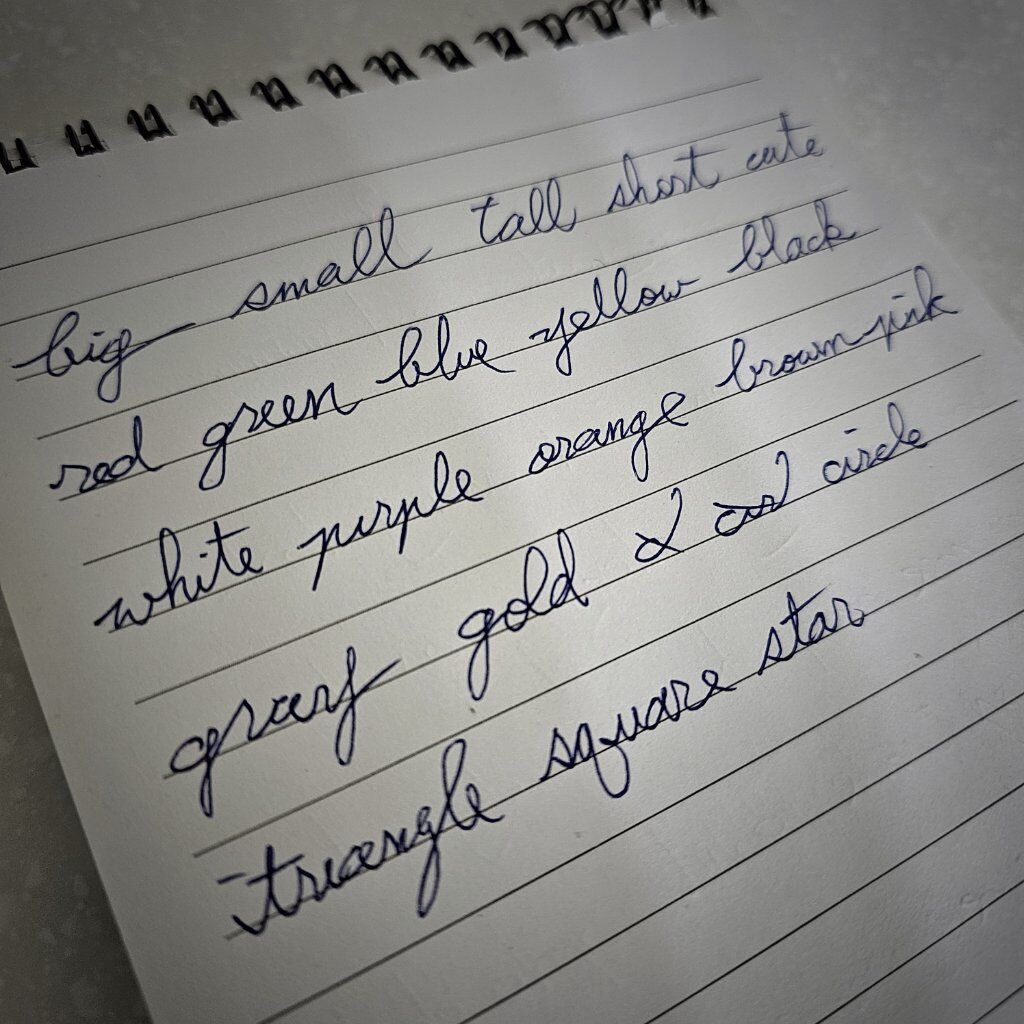 big small tall short cute
red green blue yellow black
white purple orange brown pink
gray gold circle
triangle square star